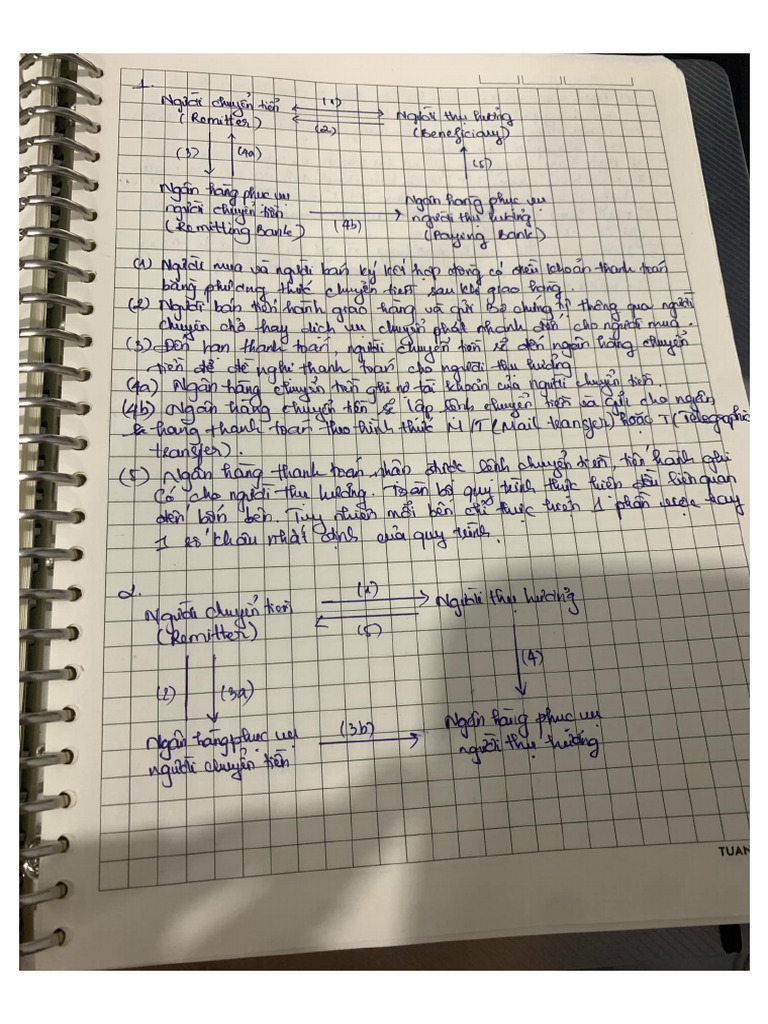 1.
Người chuyển tiền (1) Người thụ hưởng
(Remitter) (2) (Beneficiary)
(3) (4a) (5)
Ngân hàng phục vụ Ngân hàng phục vụ
người chuyển tiền người thụ hưởng
(Remitting Bank) (4b) (Paying Bank)
(1) Người mua và người bán ký kết hợp đồng có điều khoản thanh toán
bằng phương thức chuyển tiền sau khi giao hàng.
(2) Người bán tiến hành giao hàng và gửi Bộ chứng từ thông qua người
chuyên chở hay dịch vụ chuyển phát nhanh đến cho người mua.
(3) Đến hạn thanh toán, người chuyển tiền sẽ đến ngân hàng chuyển
tiền để đề nghị thanh toán cho người thụ hưởng
(4a) Ngân hàng chuyển tiền ghi nợ tài khoản của người chuyển tiền.
(4b) Ngân hàng chuyển tiền sẽ lập lệnh chuyển tiền và gửi cho ngân
hàng thanh toán theo hình thức M/T (Mail transfer) hoặc T (Telegraphic
transfer).
(5) Ngân hàng thanh toán nhận được lệnh chuyển tiền, tiến hành ghi
có cho người thụ hưởng. Toàn bộ quy trình thực hiện đều liên quan
đến bốn bên. Tuy nhiên mỗi bên chỉ thực hiện 1 phần việc hay
1 số khâu nhất định của quy trình.
2.
Người chuyển tiền (1) Người thụ hưởng
(Remitter) (5)
(2) (3a) (4)
Ngân hàng phục vụ (3b) Ngân hàng phục vụ
người chuyển tiền người thụ hưởng
TUAN